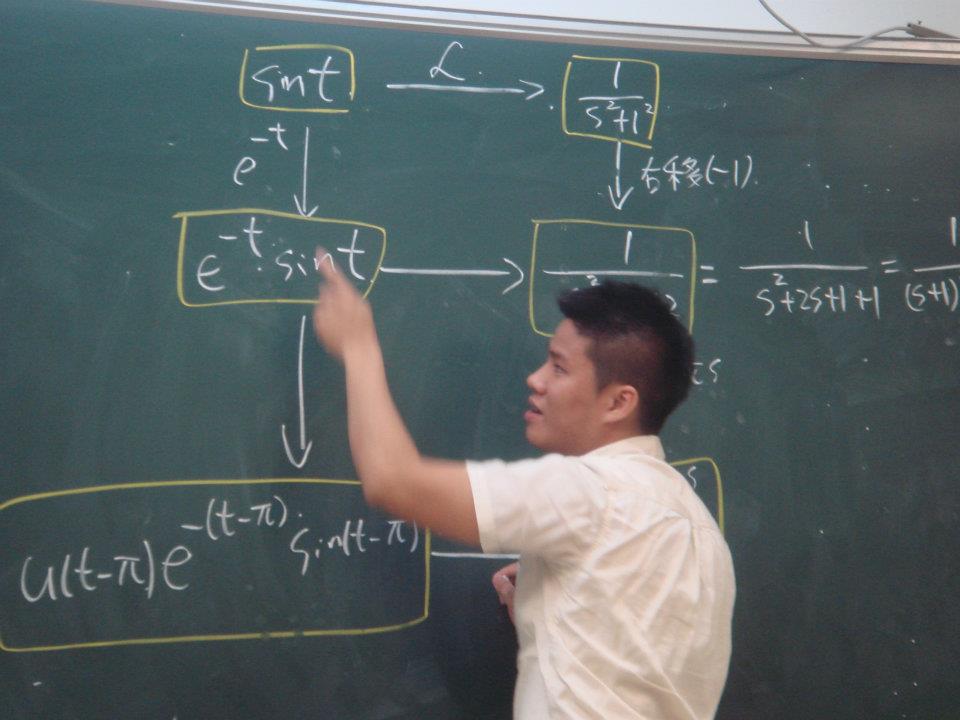 sint ℒ. 1/(s²+1²)
e^{-t} 右移(-1)
e^{-t}·sint 1 = 1/(s²+2s+1+1) = 1/(s+1)
u(t-π)e^{-(t-π)}·sin(t-π)